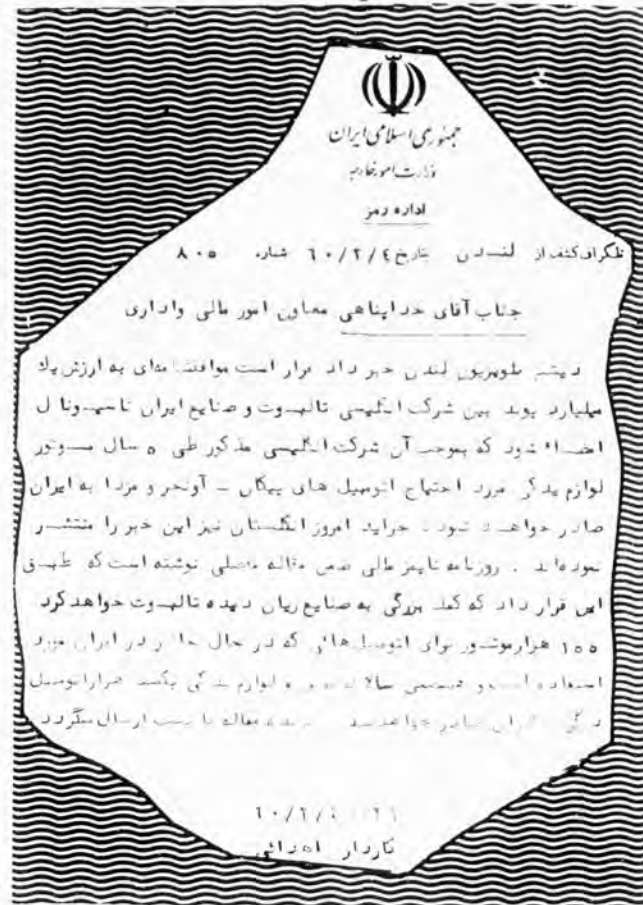 جمهوری اسلامی ایران
وزارت امور خارجه
اداره رمز
تلگراف کشف از لندن بتاریخ ۶۰/۲/۴ شماره ۸۰۵
جناب آقای خداپناهی معاون امور مالی واداری
دیشب تلویزیون لندن خبر داد قرار است موافقتنامه‌ای به ارزش یك
میلیارد پوند بین شرکت انگلیسی تالبوت و صنایع ایران ناسیونال
امضاء شود که بموجب آن شرکت انگلیسی مذکور طی ۵ سال موتور
لوازم یدکی مورد احتیاج اتومبیل های پیکان ــ آونجر و مزدا به ایران
صادر خواهد نمود . جراید امروز انگلستان نیز این خبر را منتشر
نموده‌اند . روزنامه تایمز مالی ضمن مقاله مفصلی نوشته است که طبق
این قرار داد که کمك بزرگی به صنایع زیان دیده تالبوت خواهد کرد
۱۰۰ هزار موتور برای اتومبیل‌هائی که در حال حاضر در ایران مورد
استفاده است و همچنین سالانه لوازم یدکی یکصد هزار اتومبیل
دیگر صادر خواهد شد مقاله با پست ارسال میگردد
کاردار